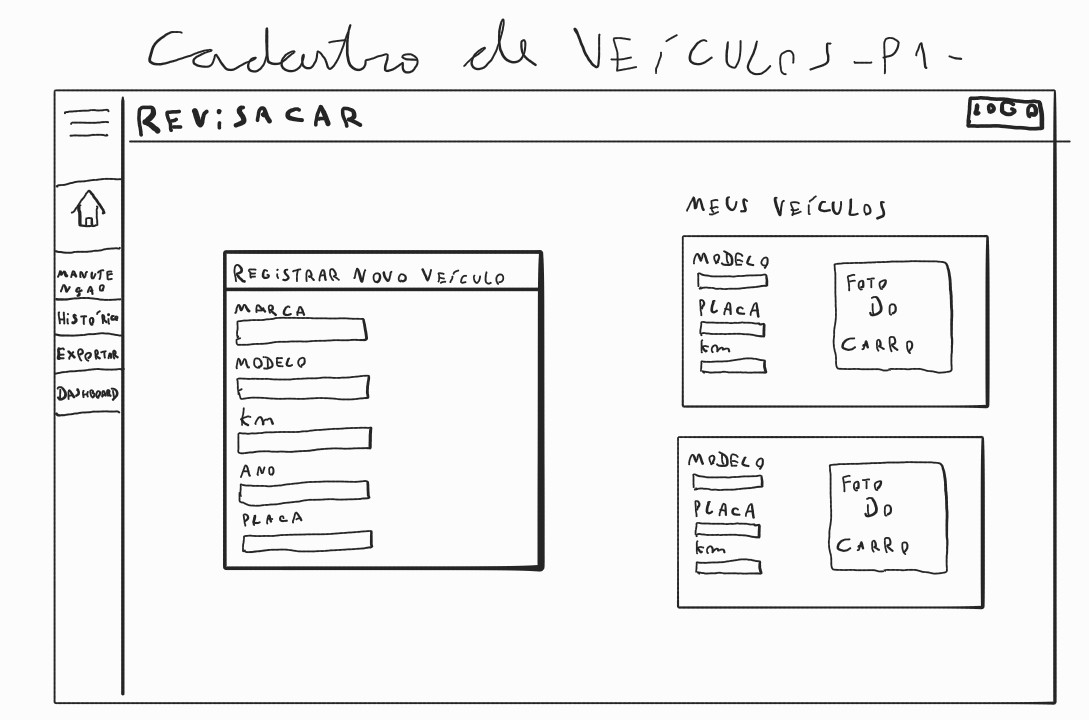 Cadastro de VEÍCULOS -P1-
REViSACAR
LOGO
MANUTE
NÇAO
HiSTÓRico
EXPORTAR
DASHBOARD
REGiSTRAR NOVO VEÍCULO
MARCA
MODELO
km
ANO
PLACA
MEUS VEÍCULOS
MODELO
PLACA
km
FOTO
DO
CARRO
MODELO
PLACA
km
FOTO
DO
CARRO